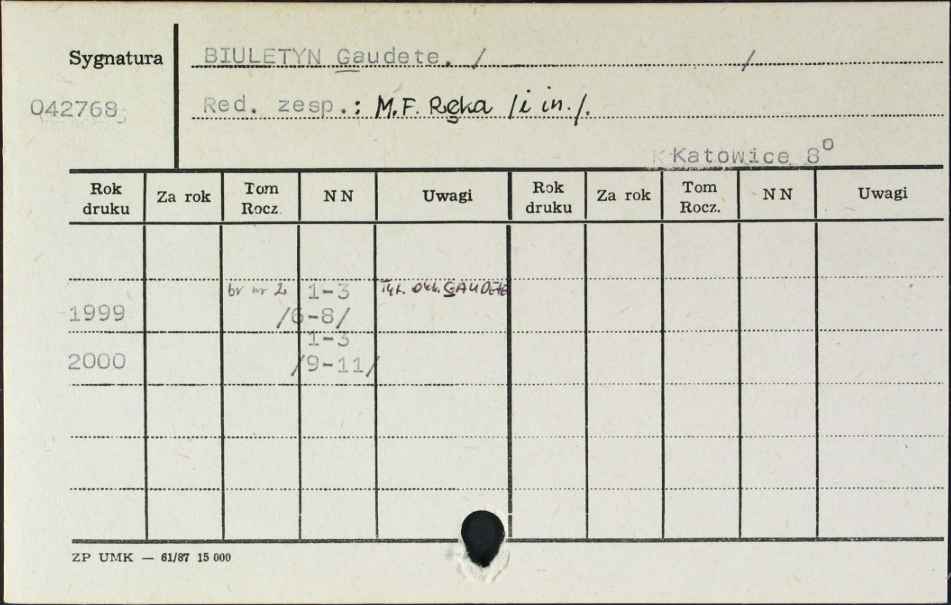 Sygnatura BIULETYN Gaudete. / /
042768 Red. zesp.: M.F. Ręka /i in./.
Katowice 8°
Rok druku Za rok Tom Rocz. NN Uwagi Rok druku Za rok Tom Rocz. NN Uwagi
br nr 2 1-3 Tyt. okł. GAUDETE
1999 /6-8/
1-3
2000 /9-11/
ZP UMK — 61/87 15 000